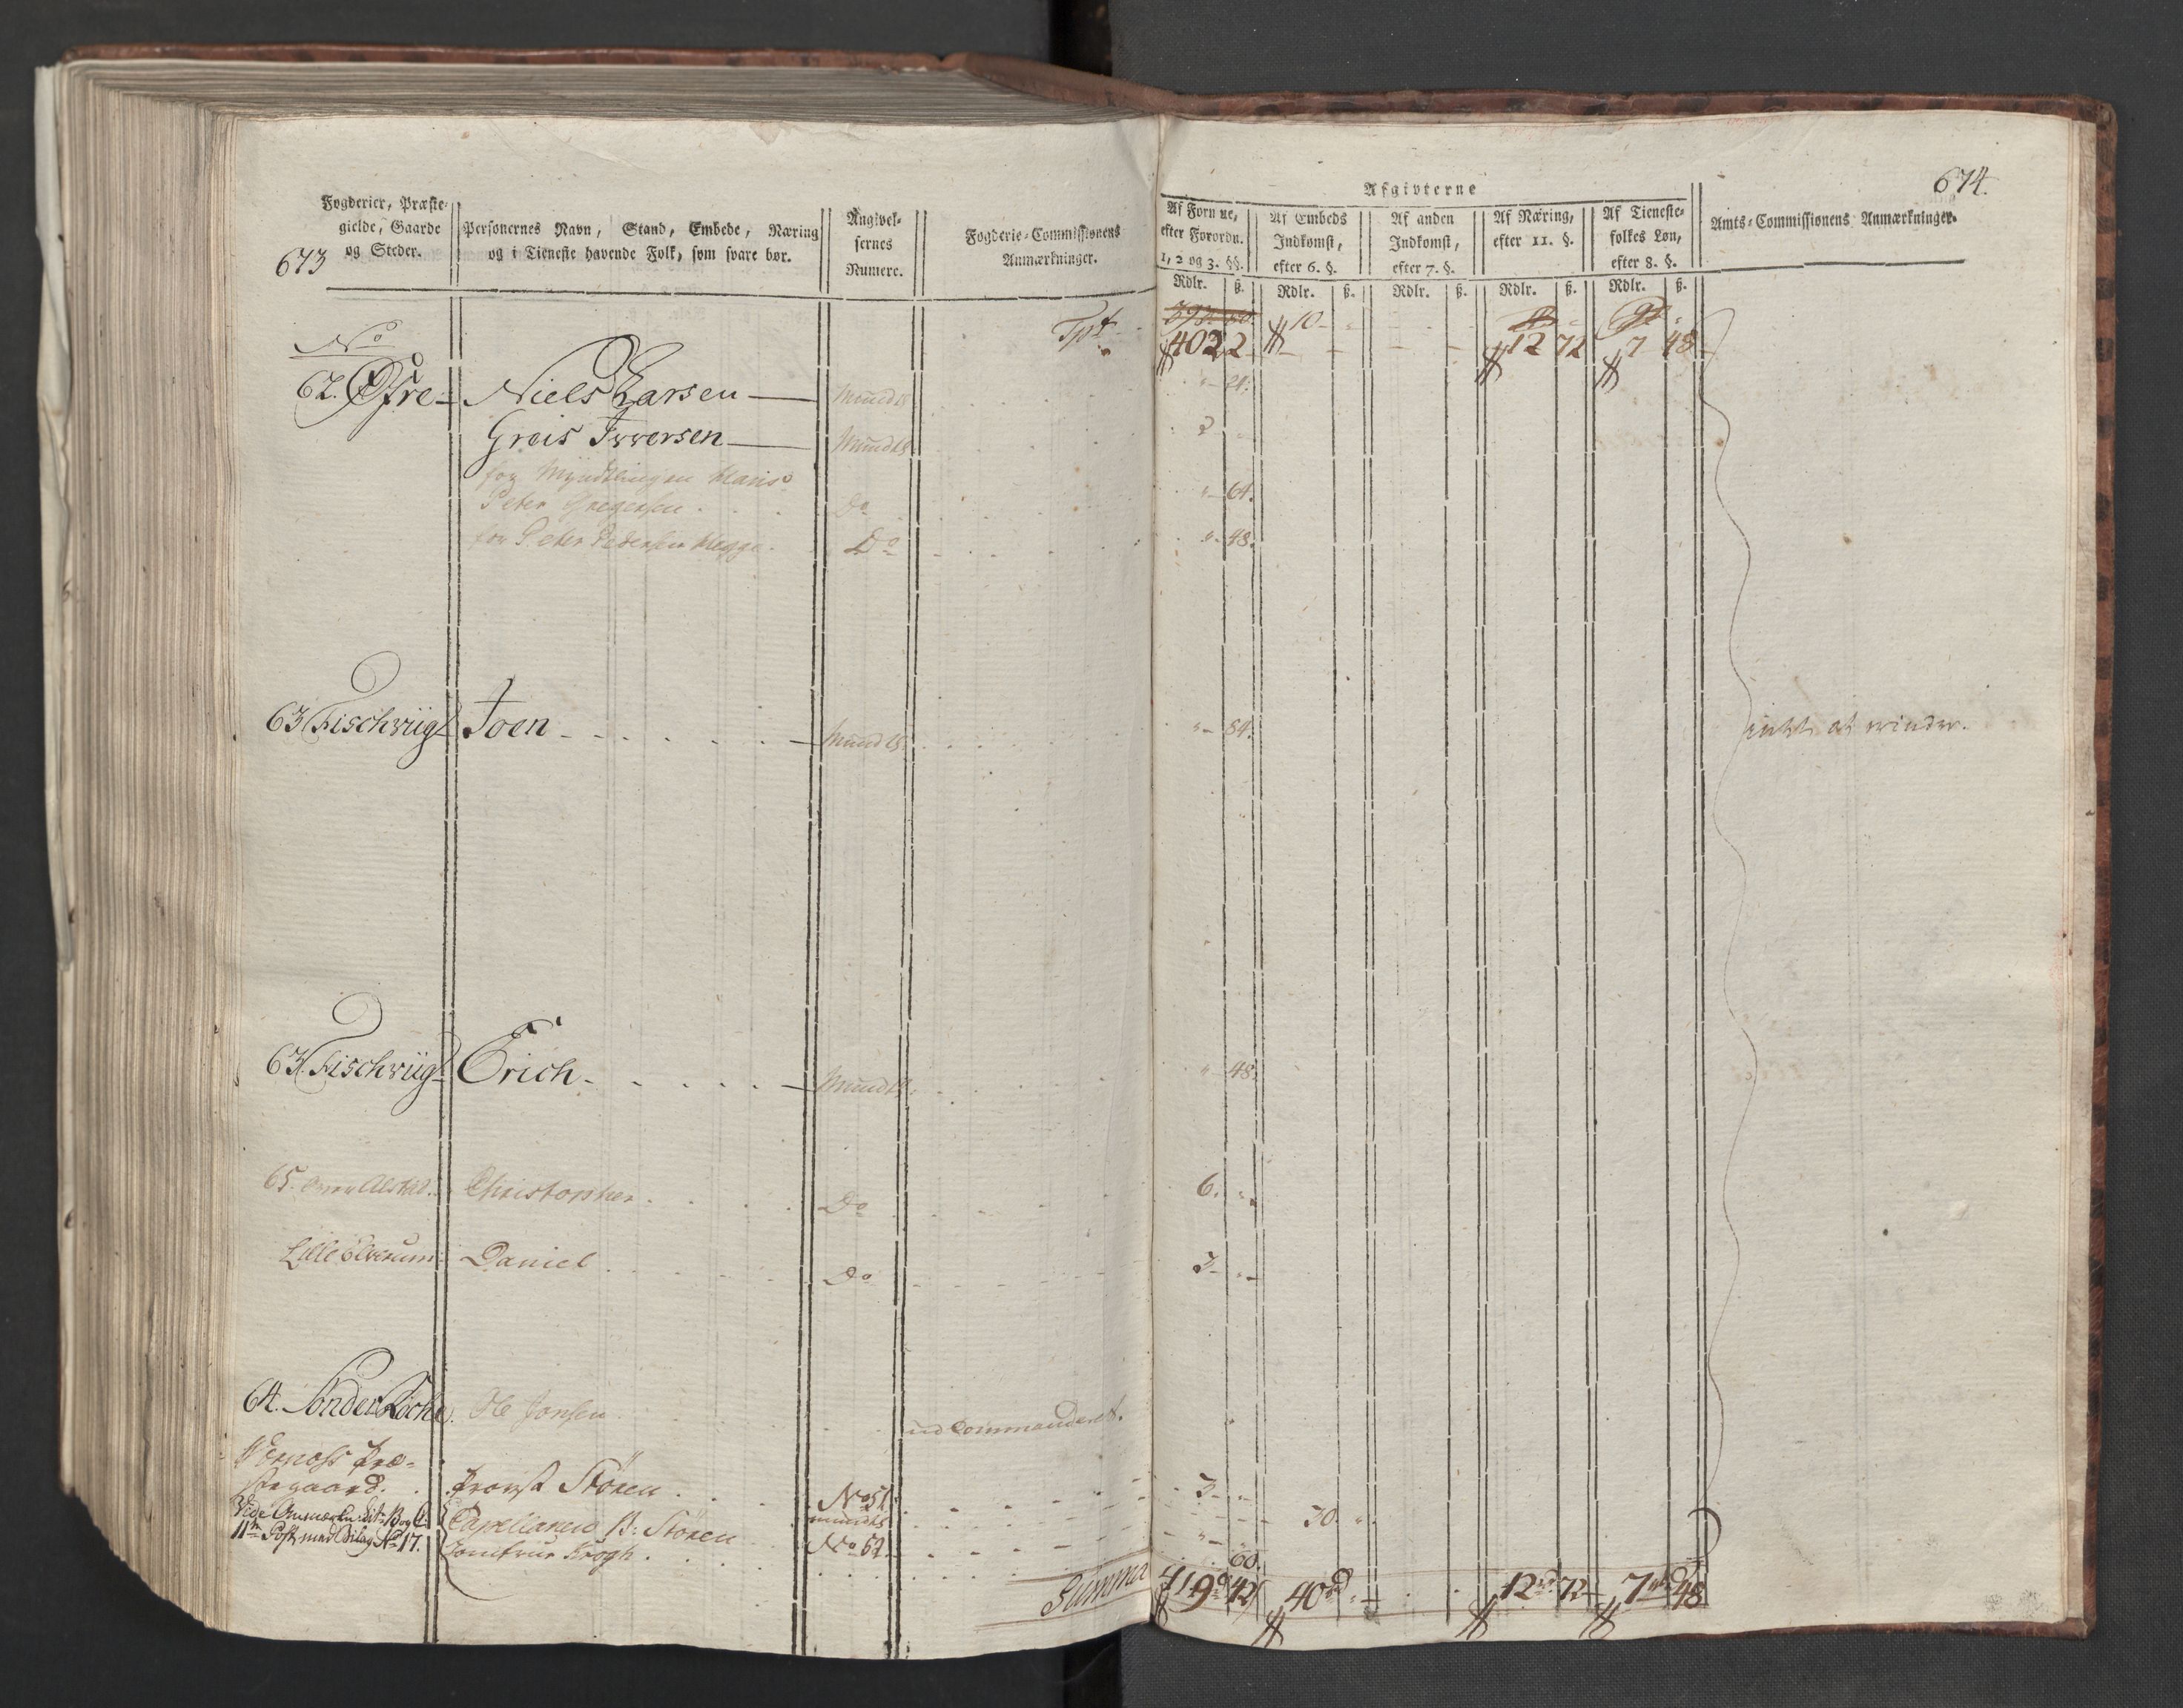 673
Fogderier, Præste-
gielde, Gaarde
og Steder.
Personernes Navn, Stand, Embede, Næring
og i Tieneste havende Folk, som svare bør.
Angivel-
sernes
Numere.
Fogderie-Commissionens
Anmærkninger.
674.
Afgivterne
Af Formue,
efter Forordn.
1, 2 og 3. §§.
Af Embeds
Indkomst,
efter 6. §.
Af anden
Indkomst,
efter 7. §.
Af Næring,
efter 11. §.
Af Tieneste-
folkes Løn,
efter 8. §.
Amts-Commissionens Anmærkninger.
Rdlr. ß. Rdlr. ß. Rdlr. ß. Rdlr. ß. Rdlr. ß.
Tpt 10
402 2 12 72 7 48
No
62. Øfre Niels Larsen mundtl 24.
Greis Iwersen mundtl 2
for Myndtlingen Hans
Peter Gregersen Do 64.
for Peter Pedersen Do 48.
63 Fischviig Joen mundtl 84. at erindre.
63. Fischviig Erich mundtl 48.
65. Christopher Do 6.
Lille Elverum Daniel Do 3
64. Sønder Ole Jonsen ud Commanderet.
Præ-
stegaard. Provst Stören No 51 3
Vide Anmærkn: Lit: B og C: Capellanen B: Stören mundtl 30.
11te Post med Bilag No 17. Jomfrue Krogh No 52 60.
Summa 419 42 40rd 12rd 72 7rd 48